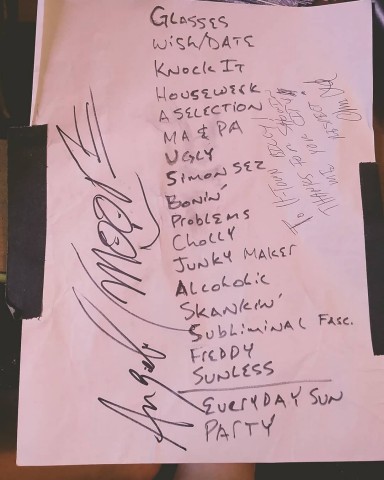 GLASSES
WISH/DATE
KNOCK IT
HOUSEWORK
A SELECTION
MA & PA
UGLY
SIMON SEZ
BONIN'
PROBLEMS
CHOLLY
JUNKY MAKER
ALCOHOLIC
SKANKIN'
SUBLIMINAL FASC.
FREDDY
SUNLESS
EVERYDAY SUN
PARTY
Angelo Moore
TO
THANKS FOR